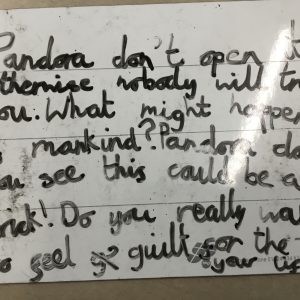 Pandora don't open it
otherwise nobody will tr
you. What might happen
mankind? Pandora do
you see this could be a
trick! Do you really wa
to feel guilt for the
your